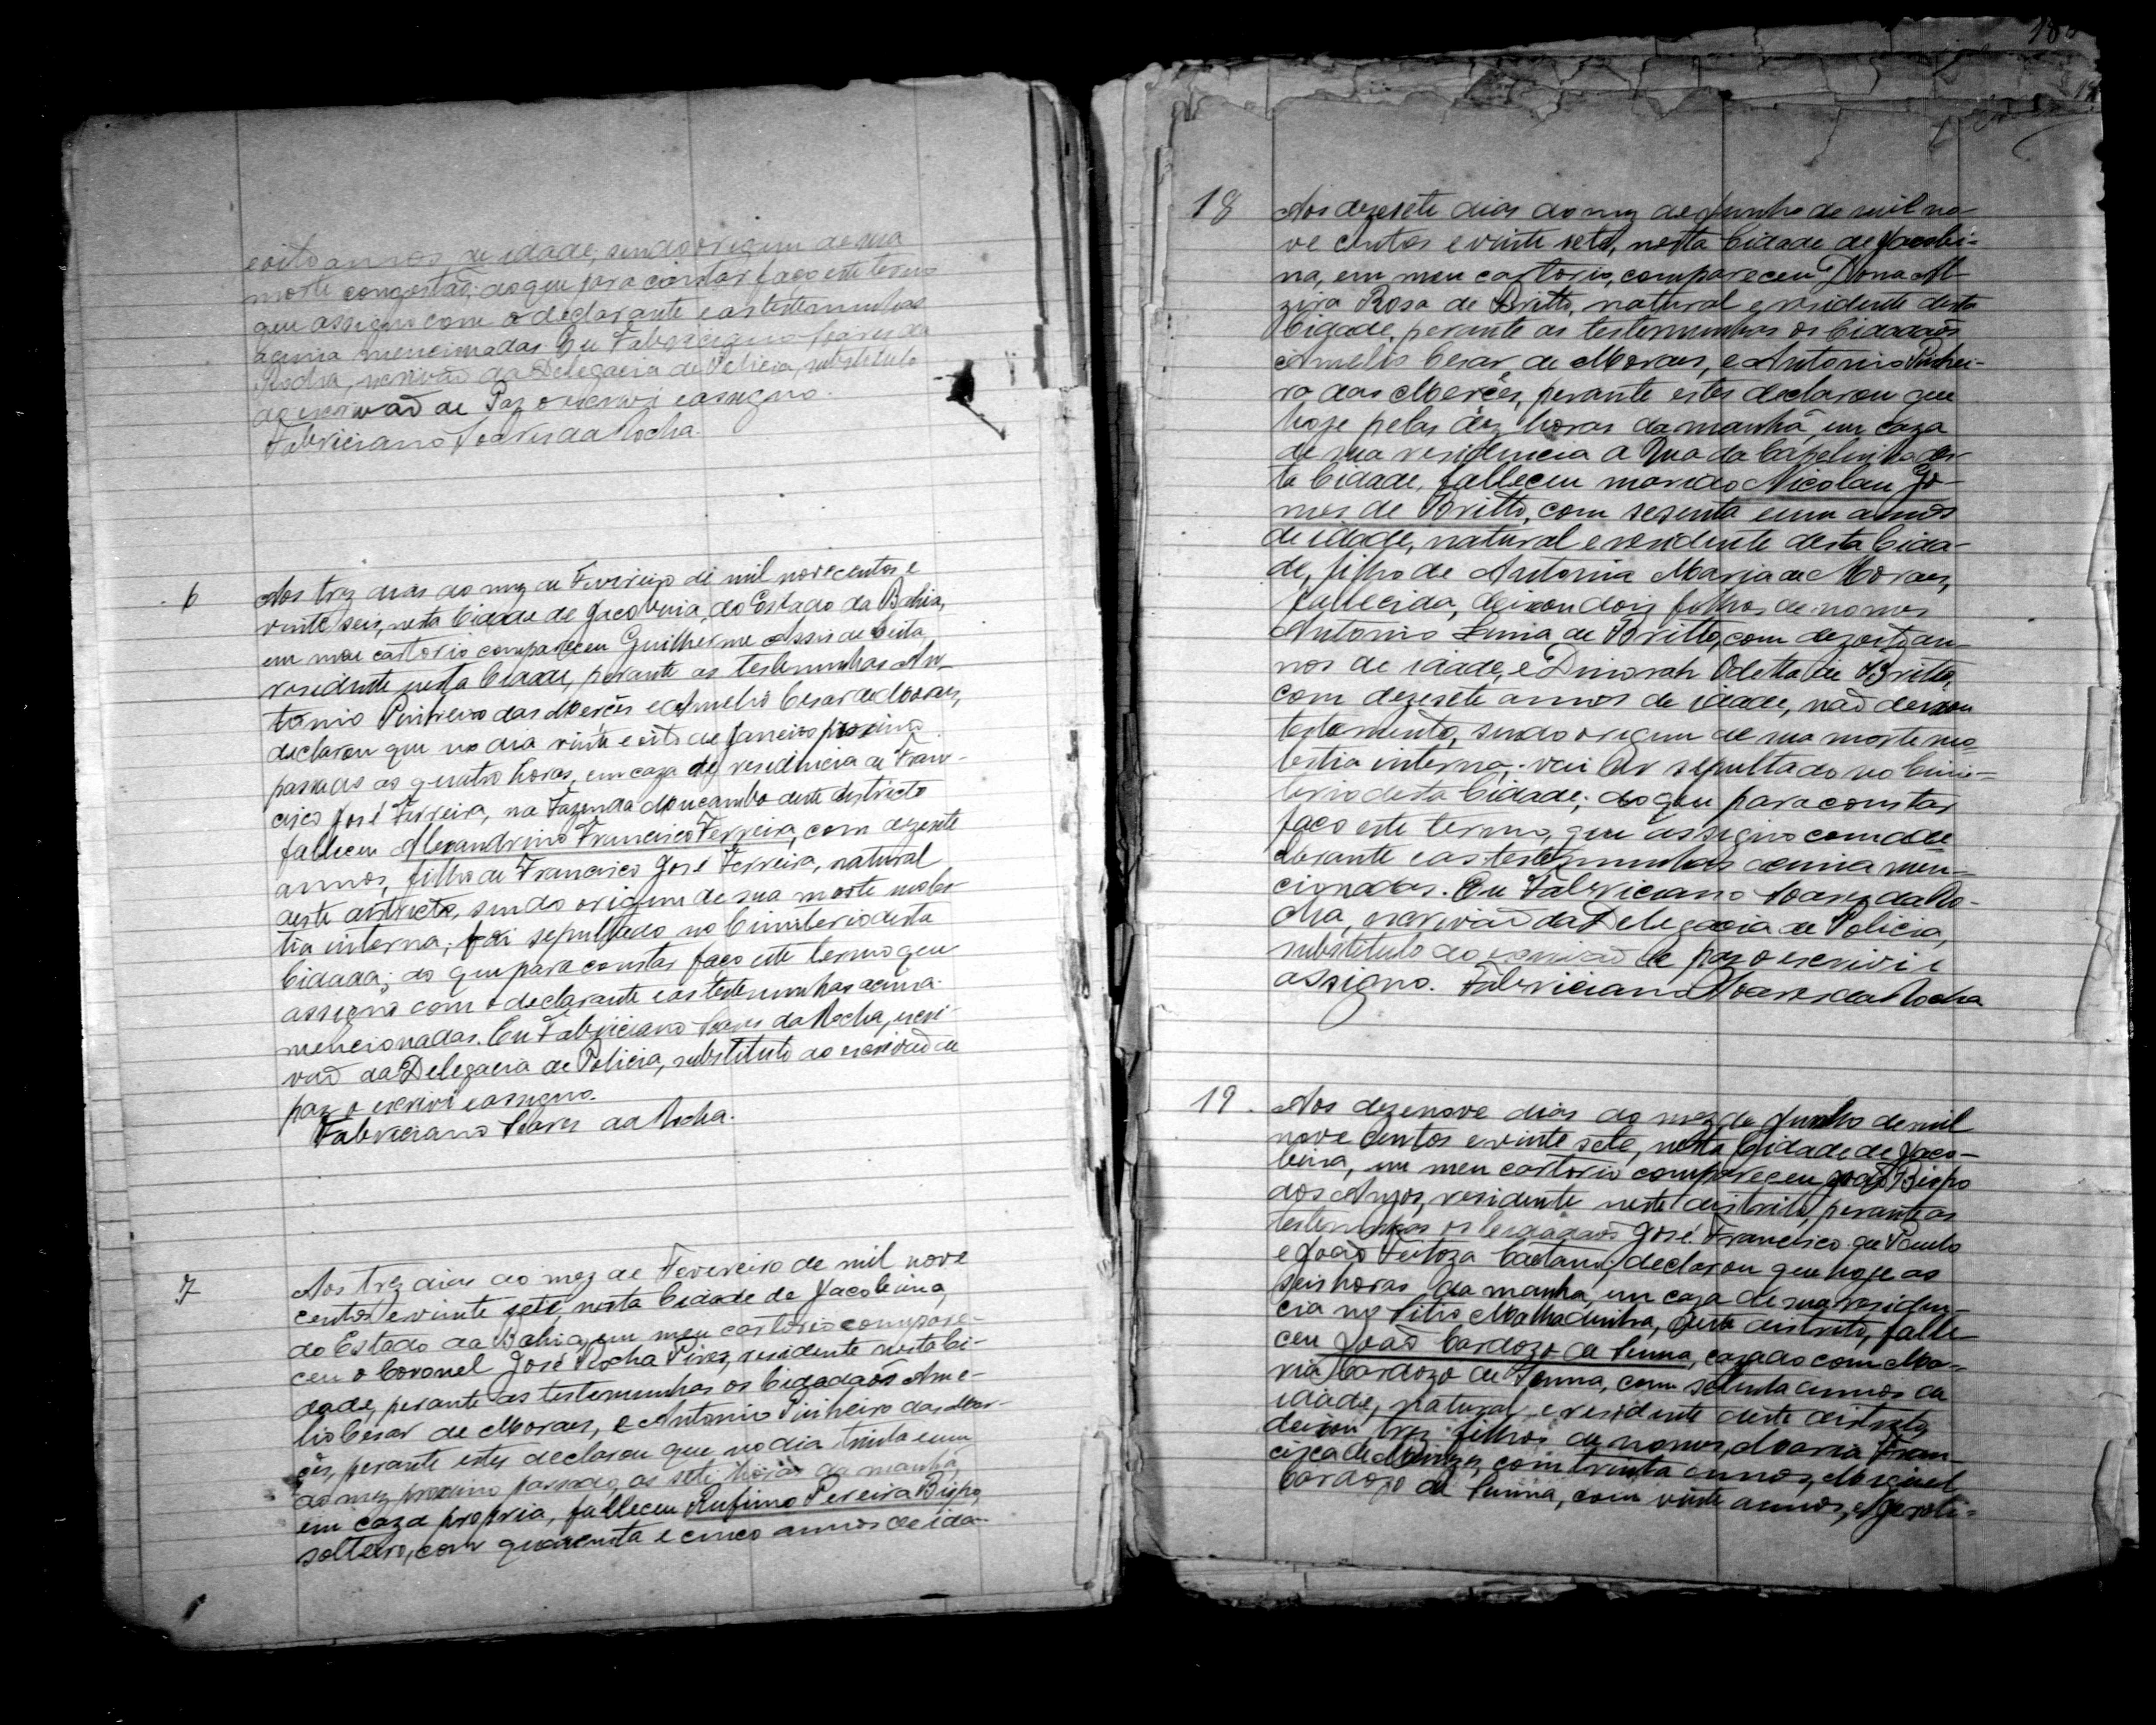 e oito annos de idade, sendo origem de sua
morte congestão, do que para constar faço este termo
que assigno com o declarante e as testemunhas
acima mencionadas. Eu Fabriciano Soares da
Rocha, escrivão da Delegacia de Policia, substituto
do escrivão de Paz o escrevi e assigno.
Fabriciano Soares da Rocha.
6
Aos trez dias do mez de Fevereiro de mil novecentos e
vinte seis, nesta Cidade de Jacobina, do Estado da Bahia,
em meu cartorio compareceu Guilherme Assis de
residente nesta Cidade, perante as testemunhas An-
tonio Pinheiro das Mercês e Amelio Cesar de Moraes,
declarou que no dia vinte e oito de Janeiro proximo
passado as quatro horas, em caza de residencia de Fran-
cisco José Ferreira, na Fazenda Moucambo deste districto
falleceu Alexandrino Francisco Ferreira, com dezesete
annos, filho de Francisco José Ferreira, natural
deste districto, sendo origem de sua morte moles-
tia interna; foi sepultado no Cimiterio desta
Cidade; do que para constar faço este termo que
assigno com o declarante e as testemunhas acima
mencionadas. Eu Fabriciano Soares da Rocha, escri-
vão da Delegacia de Policia, substituto do escrivão de
paz o escrevi e assigno.
Fabriciano Soares da Rocha.
7
Aos trez dias do mez de Fevereiro de mil nove
centos e vinte sete, nesta Cidade de Jacobina,
do Estado da Bahia, em meu cartorio compare-
ceu o Coronel José Rocha Pires, residente nesta Ci-
dade, perante as testemunhas os Cidadãos Ame-
lio Cesar de Moraes, e Antonio Pinheiro das Mer-
cês, perante estes declarou que no dia trinta e um
do mez proximo passado, as sete horas da manhã,
em caza propria, falleceu Rufino Pereira Bispo,
solteiro, com quarenta e cinco annos de ida-
18
Aos dezesete dias do mez de Junho de mil no-
ve centos e vinte sete, nesta Cidade de Jacobi-
na, em meu cartorio, compareceu Dona Al-
zira Rosa de Britto, natural e residente desta
Cidade, perante as testemunhas os Cidadãos
Amelio Cesar de Moraes, e Antonio Pinhei-
ro das Mercês, perante estes declarou que
hoje pelas dez horas da manhã, em caza
de sua residencia a Rua da Capelinha des-
ta Cidade, falleceu marido Nicolau Go-
mes de Britto, com sesenta e um annos
de idade, natural e residente desta Cida-
de, filho de Antonia Maria de Moraes,
fallecida, deixou dois filhos de nomes
Antonio de Britto, com dezoito an-
nos de idade, e Dinorah Odetta de Britto,
com dezesete annos de idade, não deixou
testemento, sendo origem de sua morte mo-
lestia interna; vai ser sepultado no Cimi-
terio desta Cidade; do que para constar
faço este termo, que assigno com a de
clarante e as testemunhas acima men-
cionadas. Eu Fabriciano Soares da Ro-
cha, escrivão da Delegacia de Policia,
substituto do escrivão de paz o escrevi e
assigno. Fabriciano Soares da Rocha
19.
Aos dezenove dias do mez de Junho de mil
nove centos e vinte sete, nesta Cidade de Jaco-
bina, em meu cartorio compareceu João Bispo
dos Anjos, residente neste districto, perante as
testemunhas os Cidadãos José Francisco de Paula
e João Feitoza Caetano, declarou que hoje as
seis horas da manhã, em caza de sua residen-
cia no Sitio Malhadinha, deste districto, falle-
ceu João Cardozo de Senna, cazado com Ma-
ria Cardozo de Senna, com setenta annos de
idade, natural e residente deste districto,
deixou trez filhos de nomes, Maria Fran-
cisca de com trinta annos, Miguel
Cardozo de Senna, com vinte annos, e